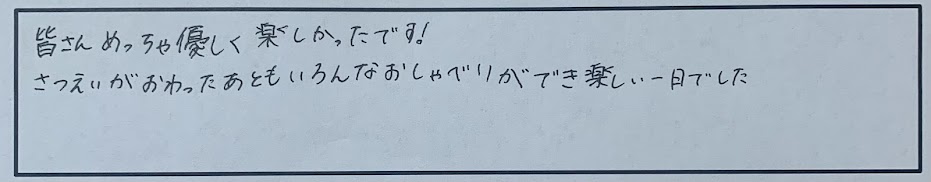 皆さんめっちゃ優しく楽しかったです!
さつえいがおわったあともいろんなおしゃべりができ楽しい一日でした